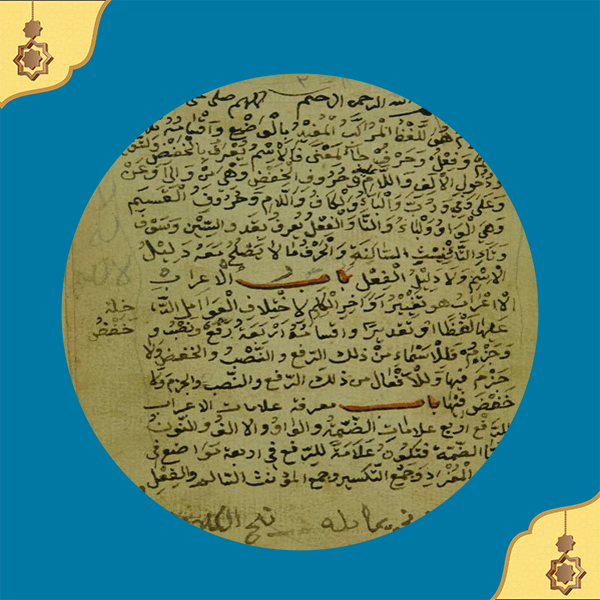 الله الرحمن الرحيم اللهم صل
هو اللفظ المركب المفيد بالوضع واقسامه
وفعل وحرف جاء لمعنى فالاسم يعرف بالخفض والتنو
ودخول الالف واللام وحروف الخفض وهي من والى وعن
وعلى وفي ورب والباء والكاف واللام وحروف القسم
وهي الواو والباء والتاء والفعل يعرف بقد والسين وسوف
وتاء التانيث الساكنة والحرف ما لا يصلح معه دليل
الاسم ولا دليل الفعل باب الاعراب
الاعراب هو تغيير اواخر الكلم لاختلاف العوامل الد
عليها لفظا او تقديرا واقسامه اربعة رفع ونصب و
وجزم فللاسماء من ذلك الرفع والنصب والخفض ولا
جزم فيها وللافعال من ذلك الرفع والنصب والجزم ولا
خفض فيها باب معرفة علامات الاعراب
للرفع اربع علامات الضمة والواو والالف والنون
الضمة فتكون علامة للرفع في اربعة مواضع في
المفرد وجمع التكسير وجمع المؤنث السالم والفعل